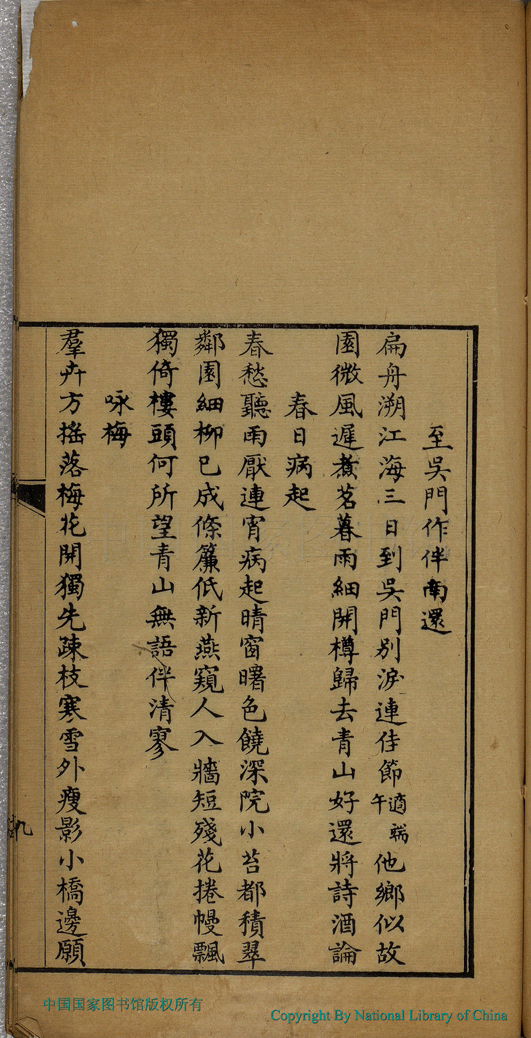 至吳門作伴南還
扁舟溯江海三日到吳門別淚連佳節適端午他鄉似故
園微風遲煑茗暮雨細開樽歸去青山好還將詩酒論
春日病起
春愁聽雨厭連宵病起晴窗曙色饒深院小苔都積翠
鄰園細柳已成條簾低新燕窺人入牆短殘花捲幔飄
獨倚樓頭何所望青山無語伴清寥
咏梅
羣卉方搖落梅花開獨先疎枝寒雪外瘦影小橋邊願
九
中国国家图书馆版权所有
Copyright By National Library of China